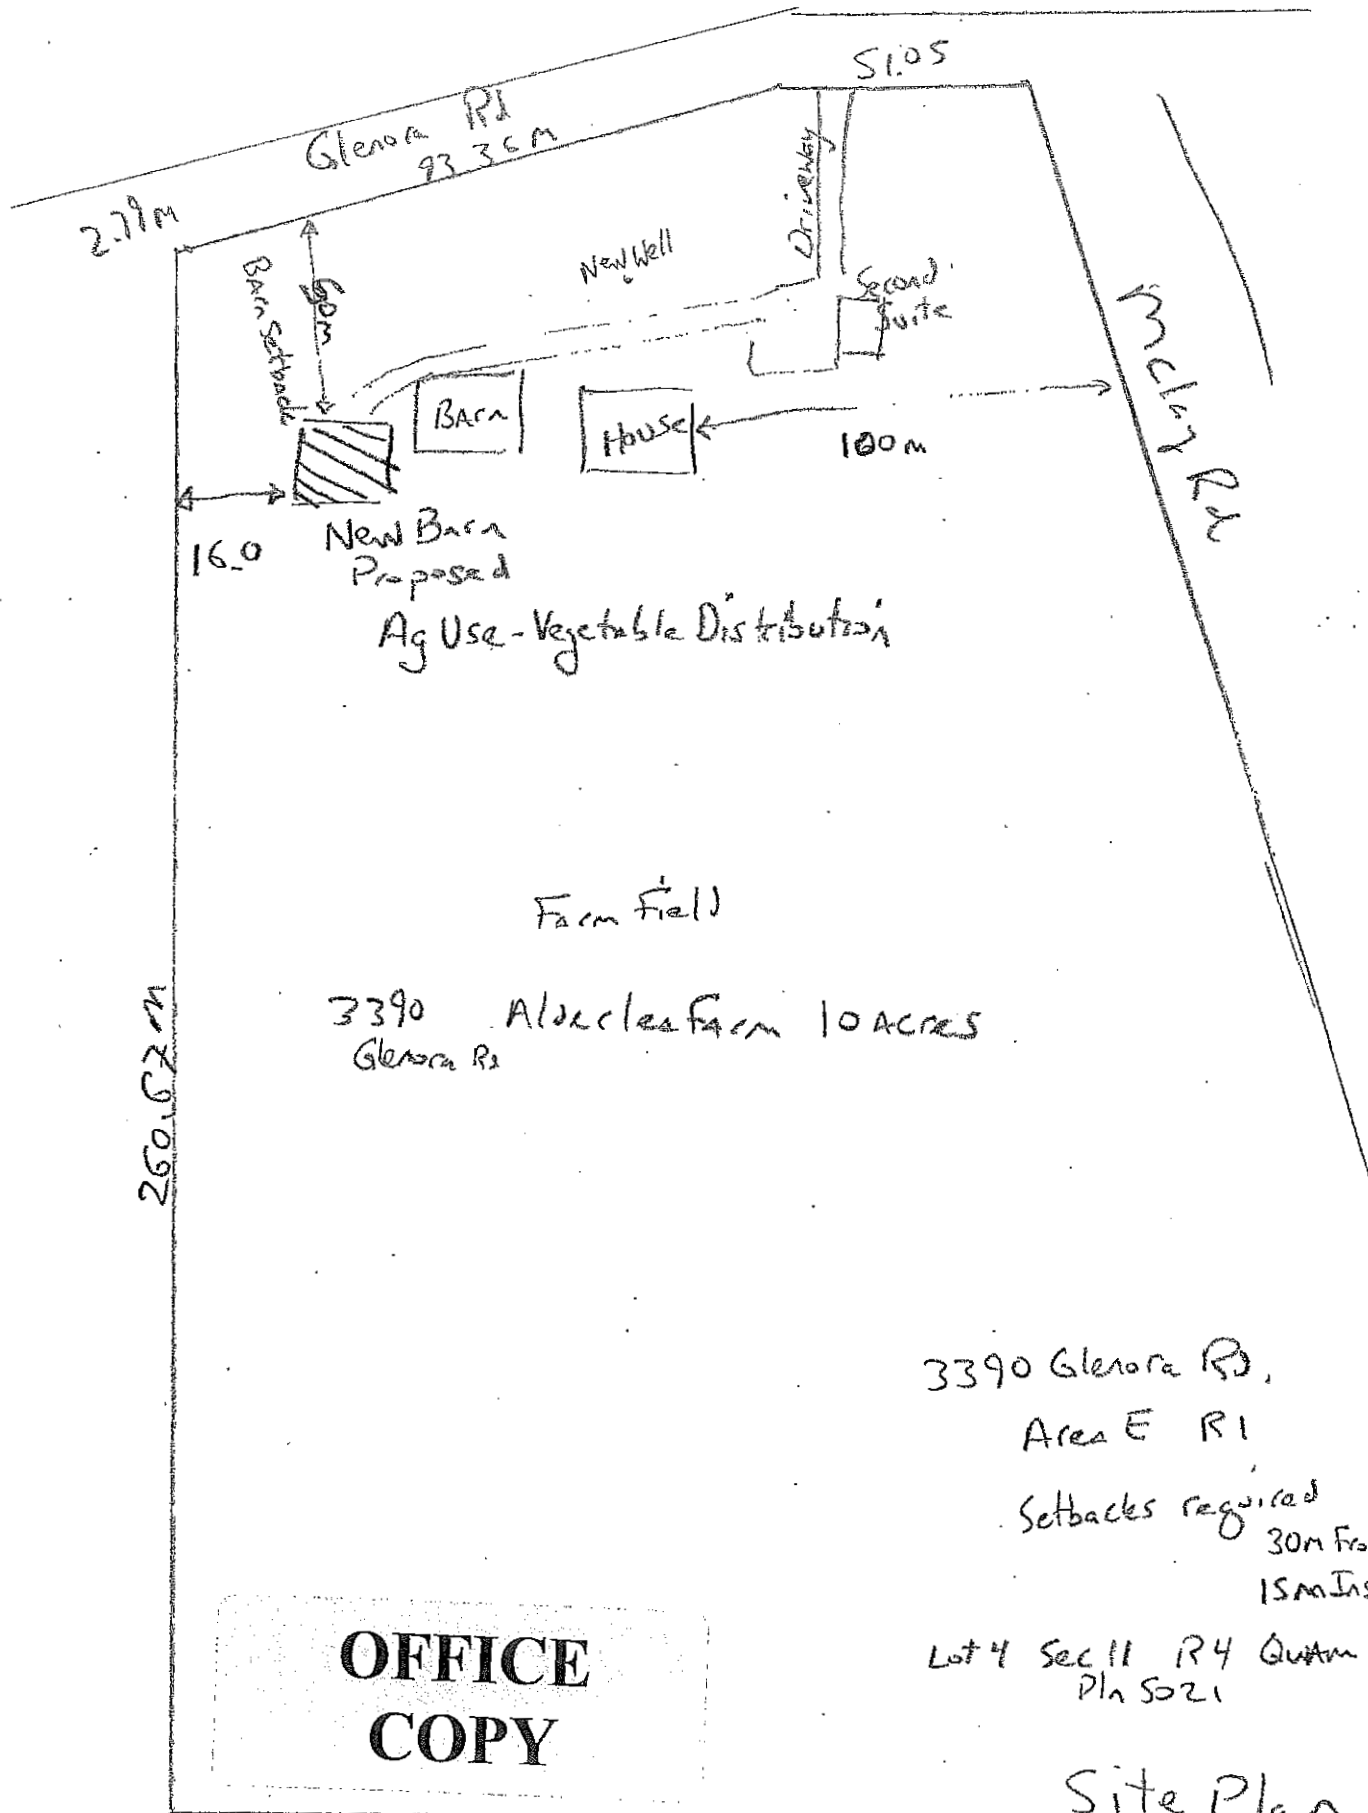 51.05
Glenora Rd
93.36 M
2.79 M
Driveway
New Well
Barn Setback
60m
Second
Suite
McLay Rd
Barn
House
100 m
16.0
New Barn
Proposed
Ag Use - Vegetable Distribution
Farm Field
3390 Alderlea Farm 10 Acres
Glenora Rd
260.67 m
3390 Glenora Rd.
Area E R1
Setbacks required
30m Fro
15m Ins
Lot 4 Sec 11 R4 Quam
Pln 5021
OFFICE
COPY
Site Plan